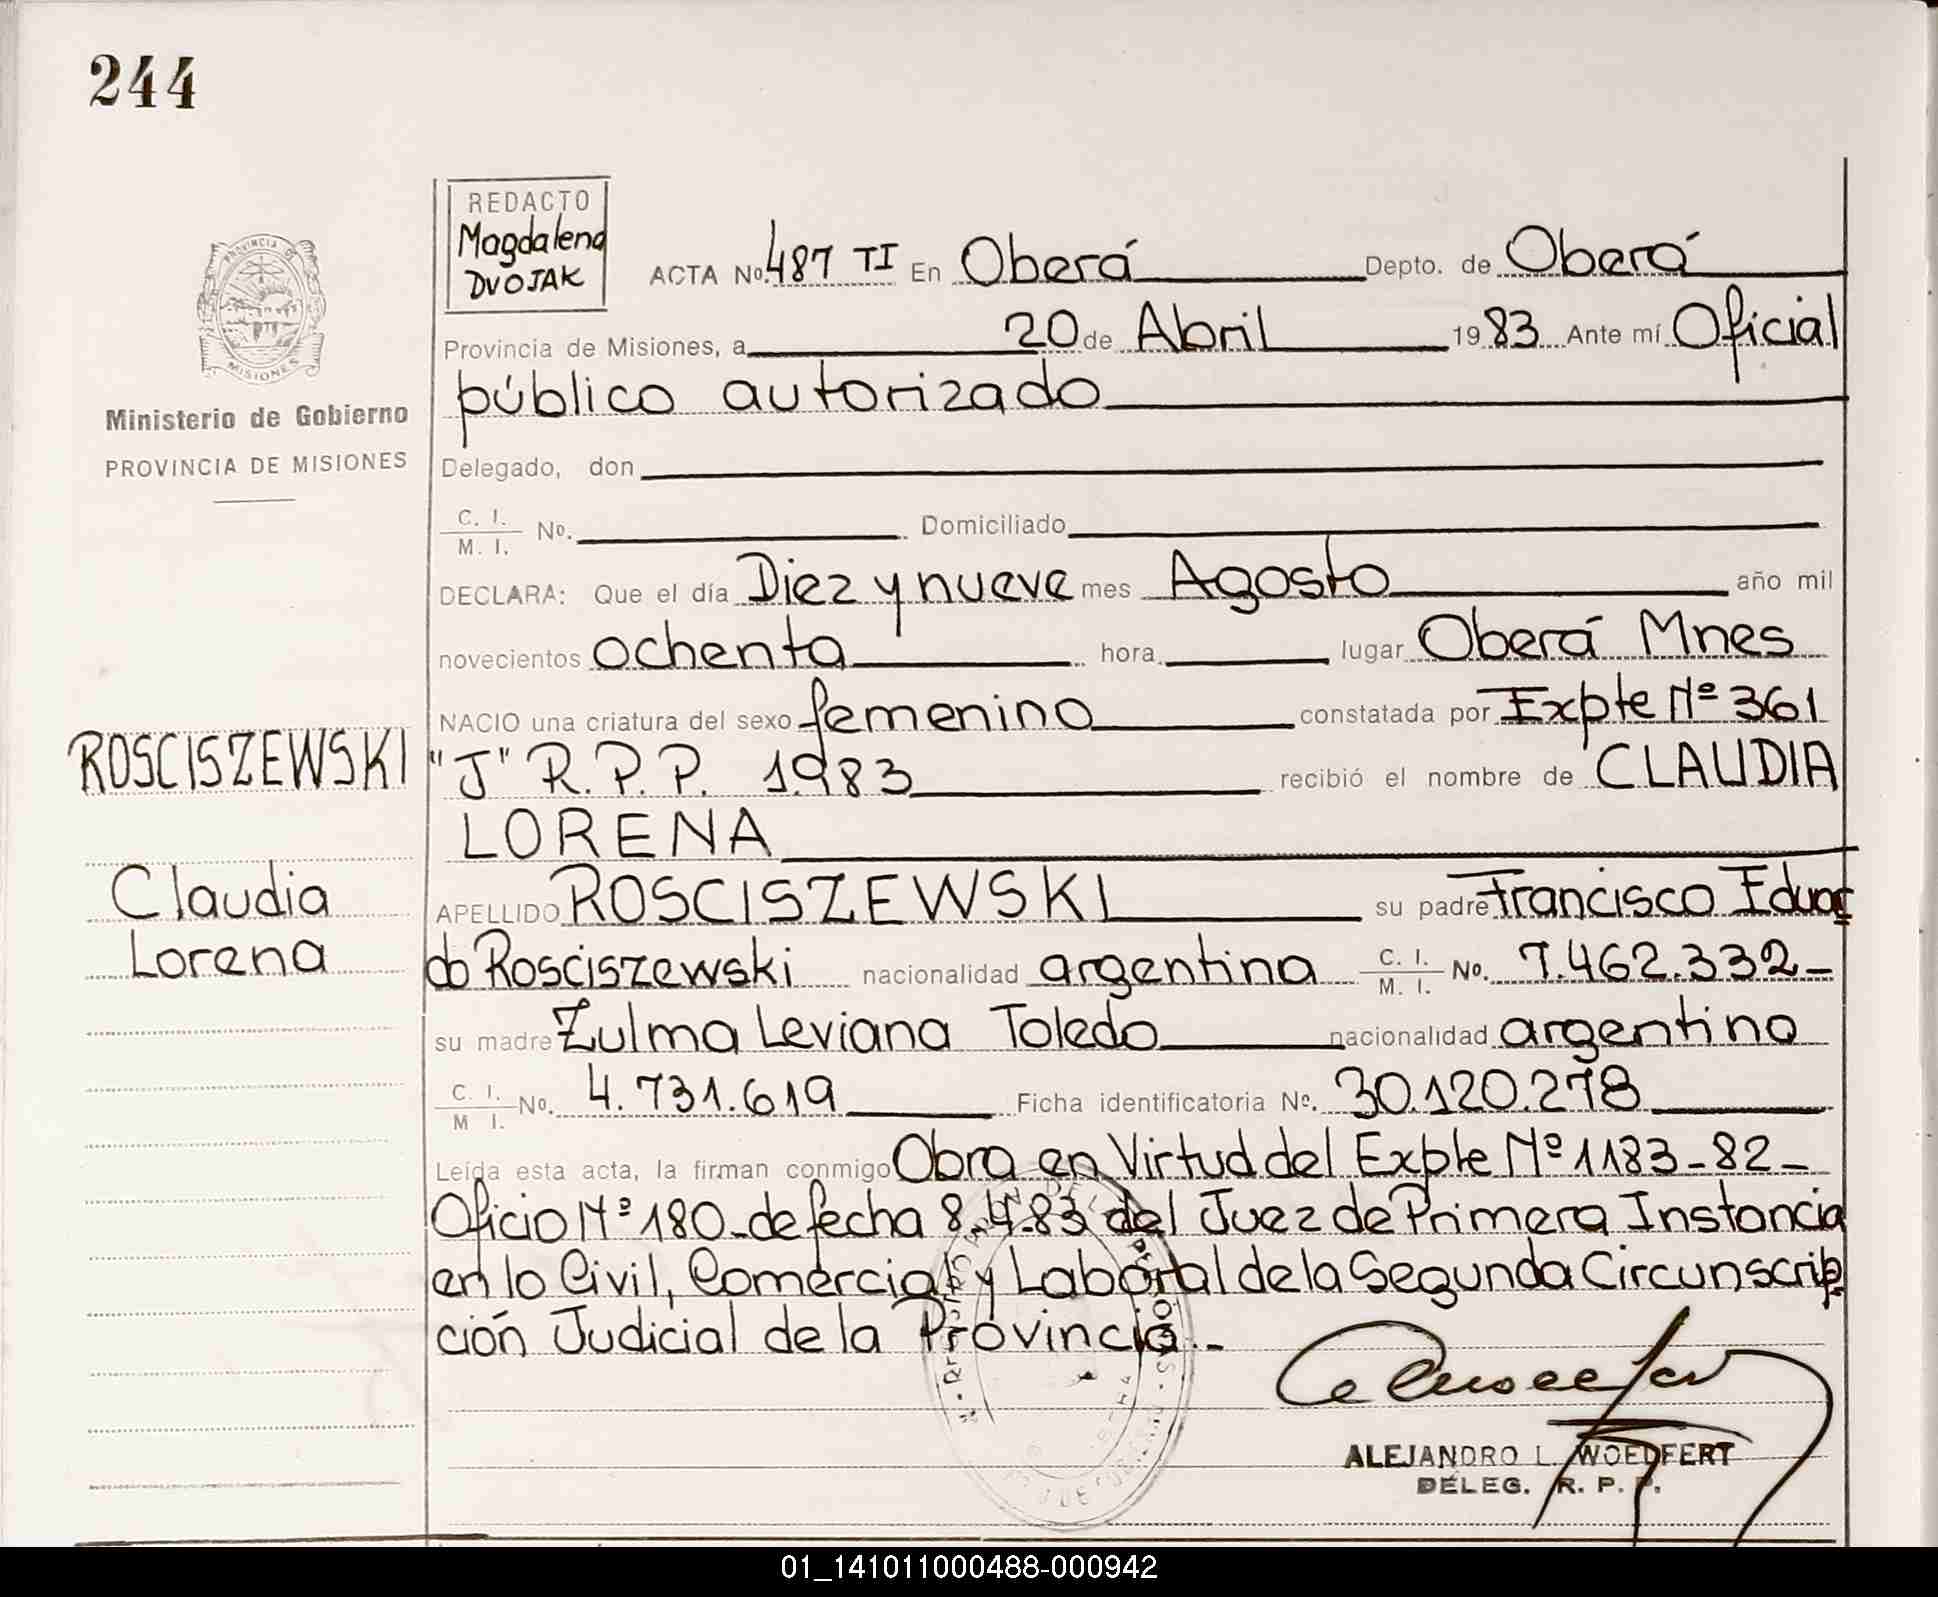 244
REDACTO
Magdalena
DVOJAK
ACTA No. 487 TI En Oberá Depto. de Oberá
Provincia de Misiones, a 20 de Abril 1983 Ante mí Oficial
público autorizado
PROVINCIA DE
MISIONES
Ministerio de Gobierno
PROVINCIA DE MISIONES
Delegado, don
C. I.
M. I. No. Domiciliado
DECLARA: Que el día Diez y nueve mes Agosto año mil
novecientos ochenta hora lugar Oberá Mnes
NACIO una criatura del sexo femenino constatada por Expte Nº 361
"J" R.P.P. 1983 recibió el nombre de CLAUDIA
LORENA
ROSCISZEWSKI
Claudia
Lorena
APELLIDO ROSCISZEWSKI su padre Francisco Eduar
do Rosciszewski nacionalidad argentina C. I.
M. I. No. 7.462.332-
su madre Zulma Leviana Toledo nacionalidad argentina
C. I.
M I. No. 4.731.619 Ficha identificatoria Nº. 30.120.278
Leída esta acta, la firman conmigo Obra en Virtud del Expte Nº 1183-82-
Oficio Nº 180-de fecha 8.4.83 del Juez de Primera Instancia
en lo Civil, Comercial y Laboral de la Segunda Circunscrip
ción Judicial de la Provincia.-
ALEJANDRO L. WOELFERT
DELEG. R. P. P.
01_141011000488-000942